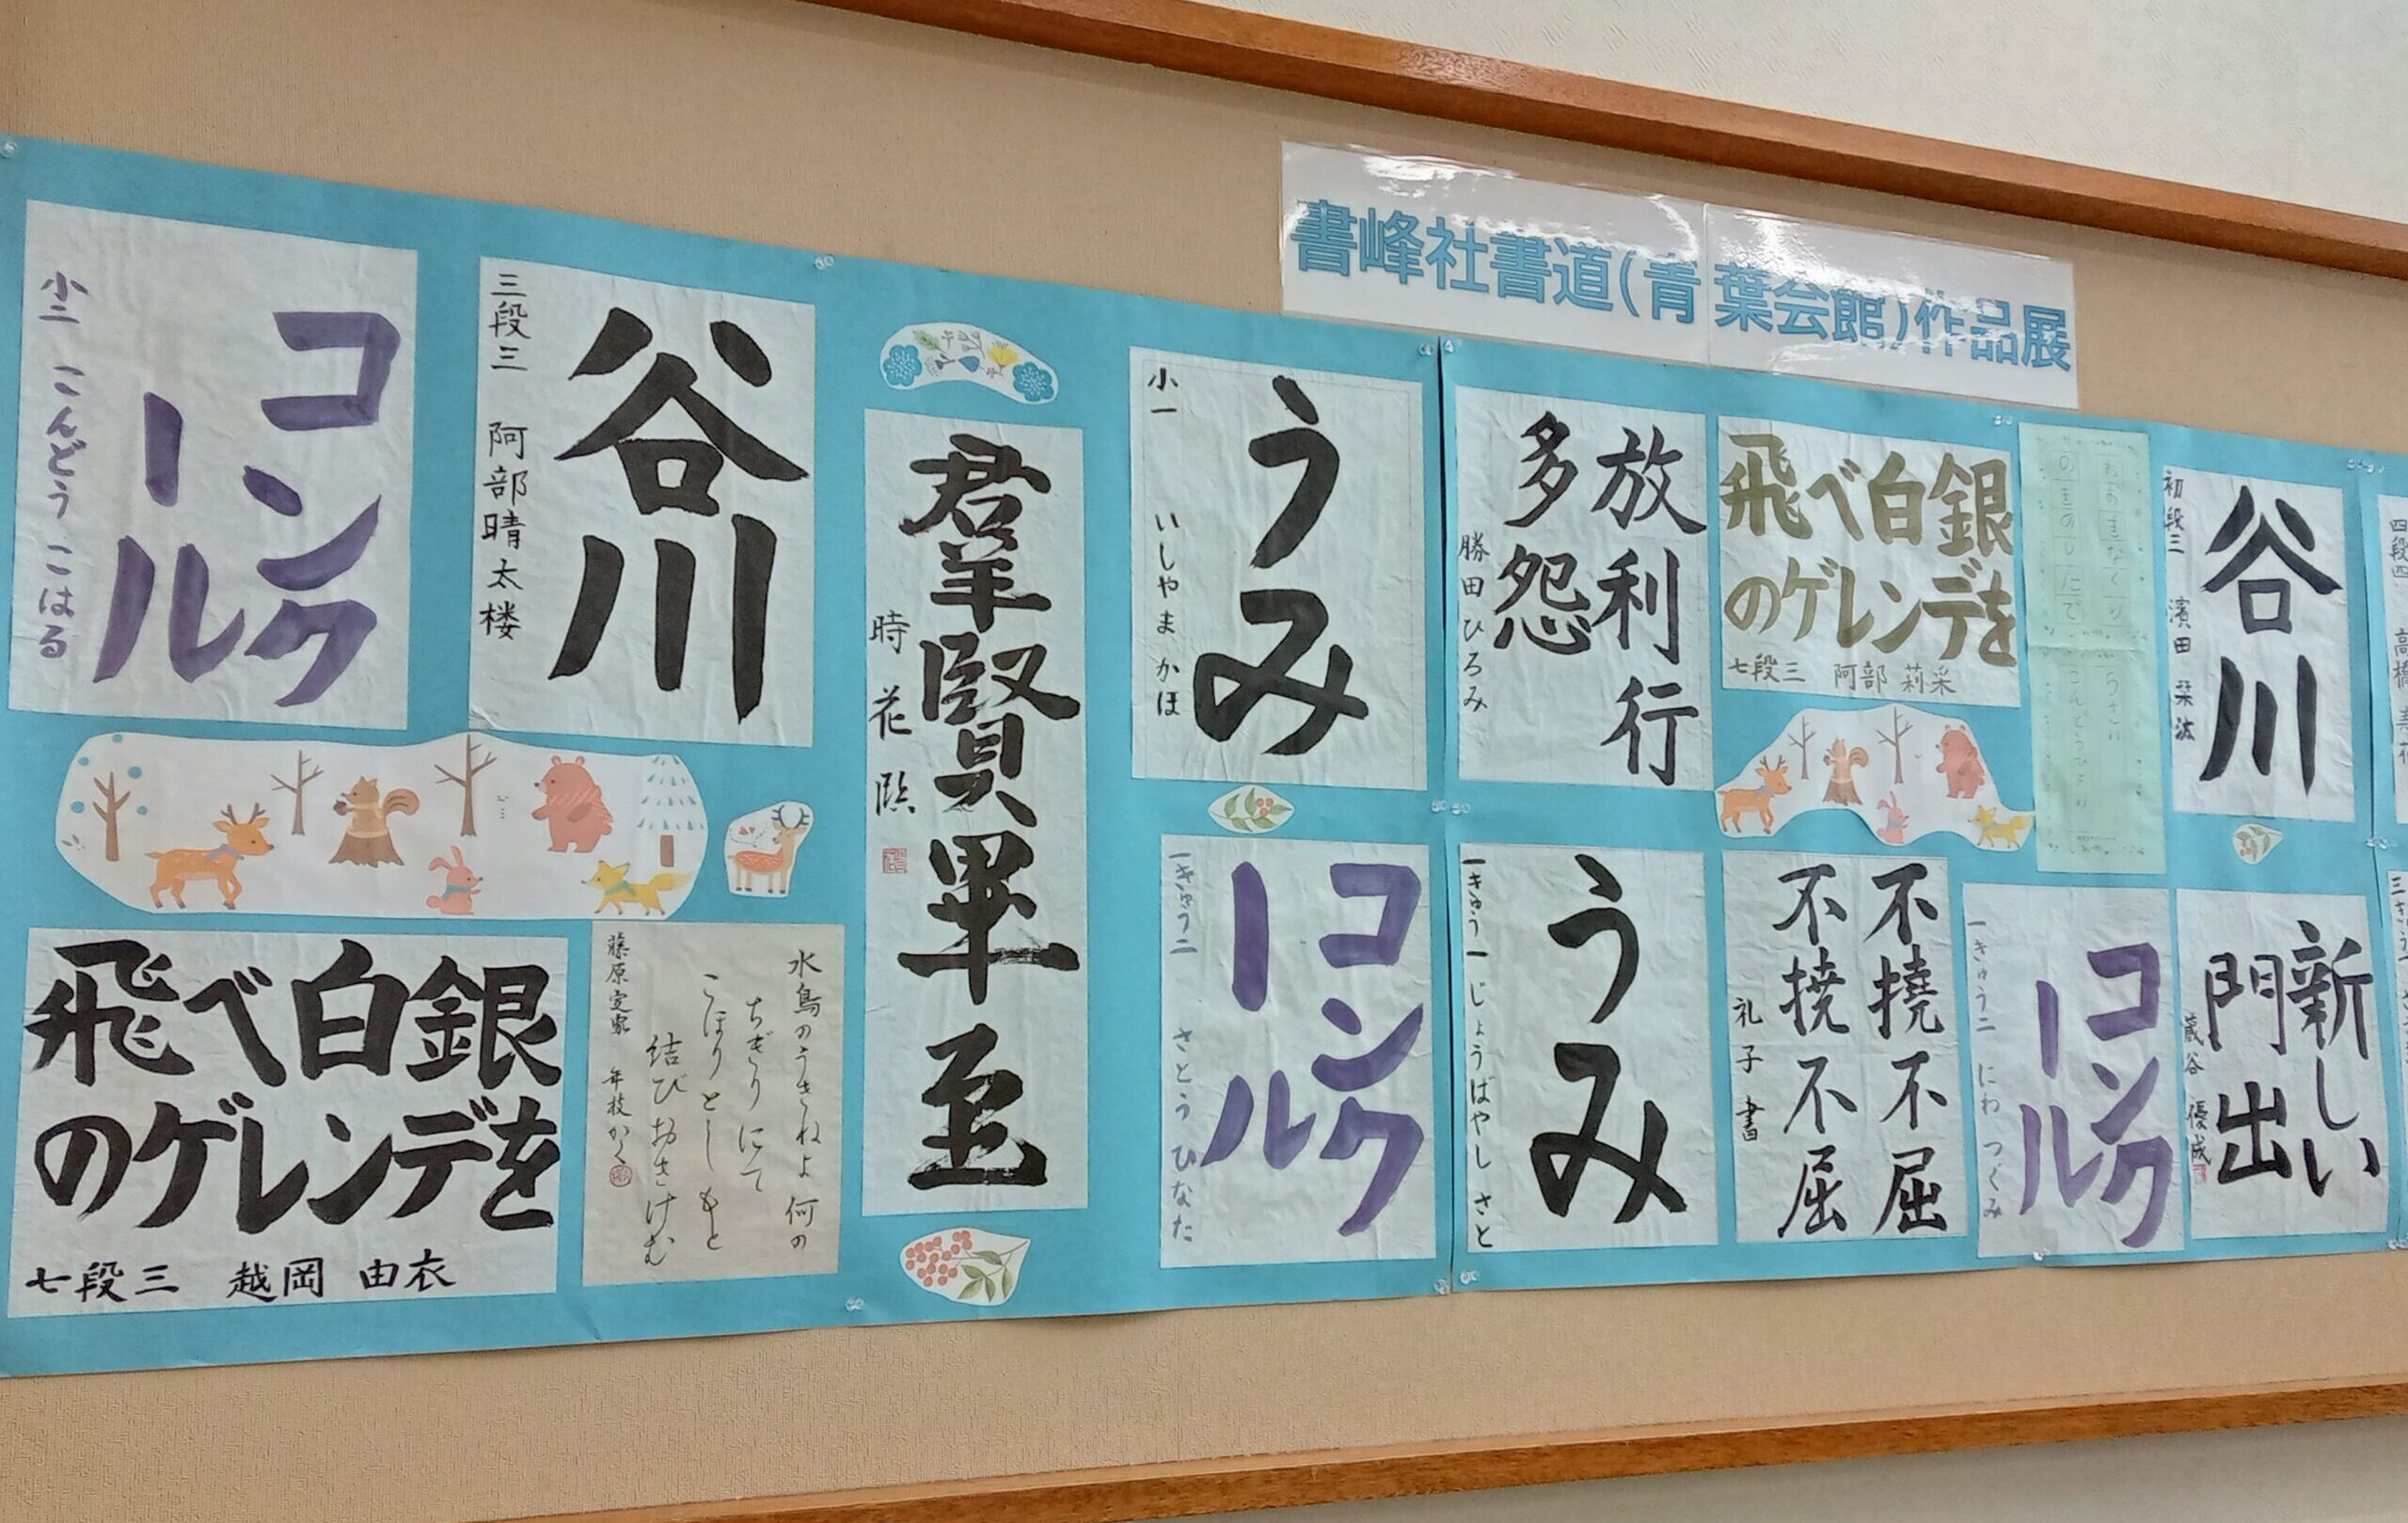 書峰社書道(青葉会館)作品展
コンクール
小二 こんどう こはる
谷川
三段三 阿部晴太楼
飛べ白銀
のゲレンデを
七段三 越岡 由衣
水鳥のうきねよ何の
ちぎりにて
こほりとし もと
結びおきけむ
藤原定家 年枝かく
羣賢畢至
時花臨
うみ
小一 いしやま かほ
コンクール
一きゅう二 さとう ひなた
放利行
多怨
勝田ひろみ
うみ
一きゅう一 じょうばやし さと
飛べ白銀
のゲレンデを
七段三 阿部 莉采
不撓不屈
不撓不屈
礼子 書
おおきなくり
のきのしにで
コンクール
一きゅう二 にわ つぐみ
谷川
初段三 濱田 栞
新しい
門出
蔵谷 優成
四段四 高橋